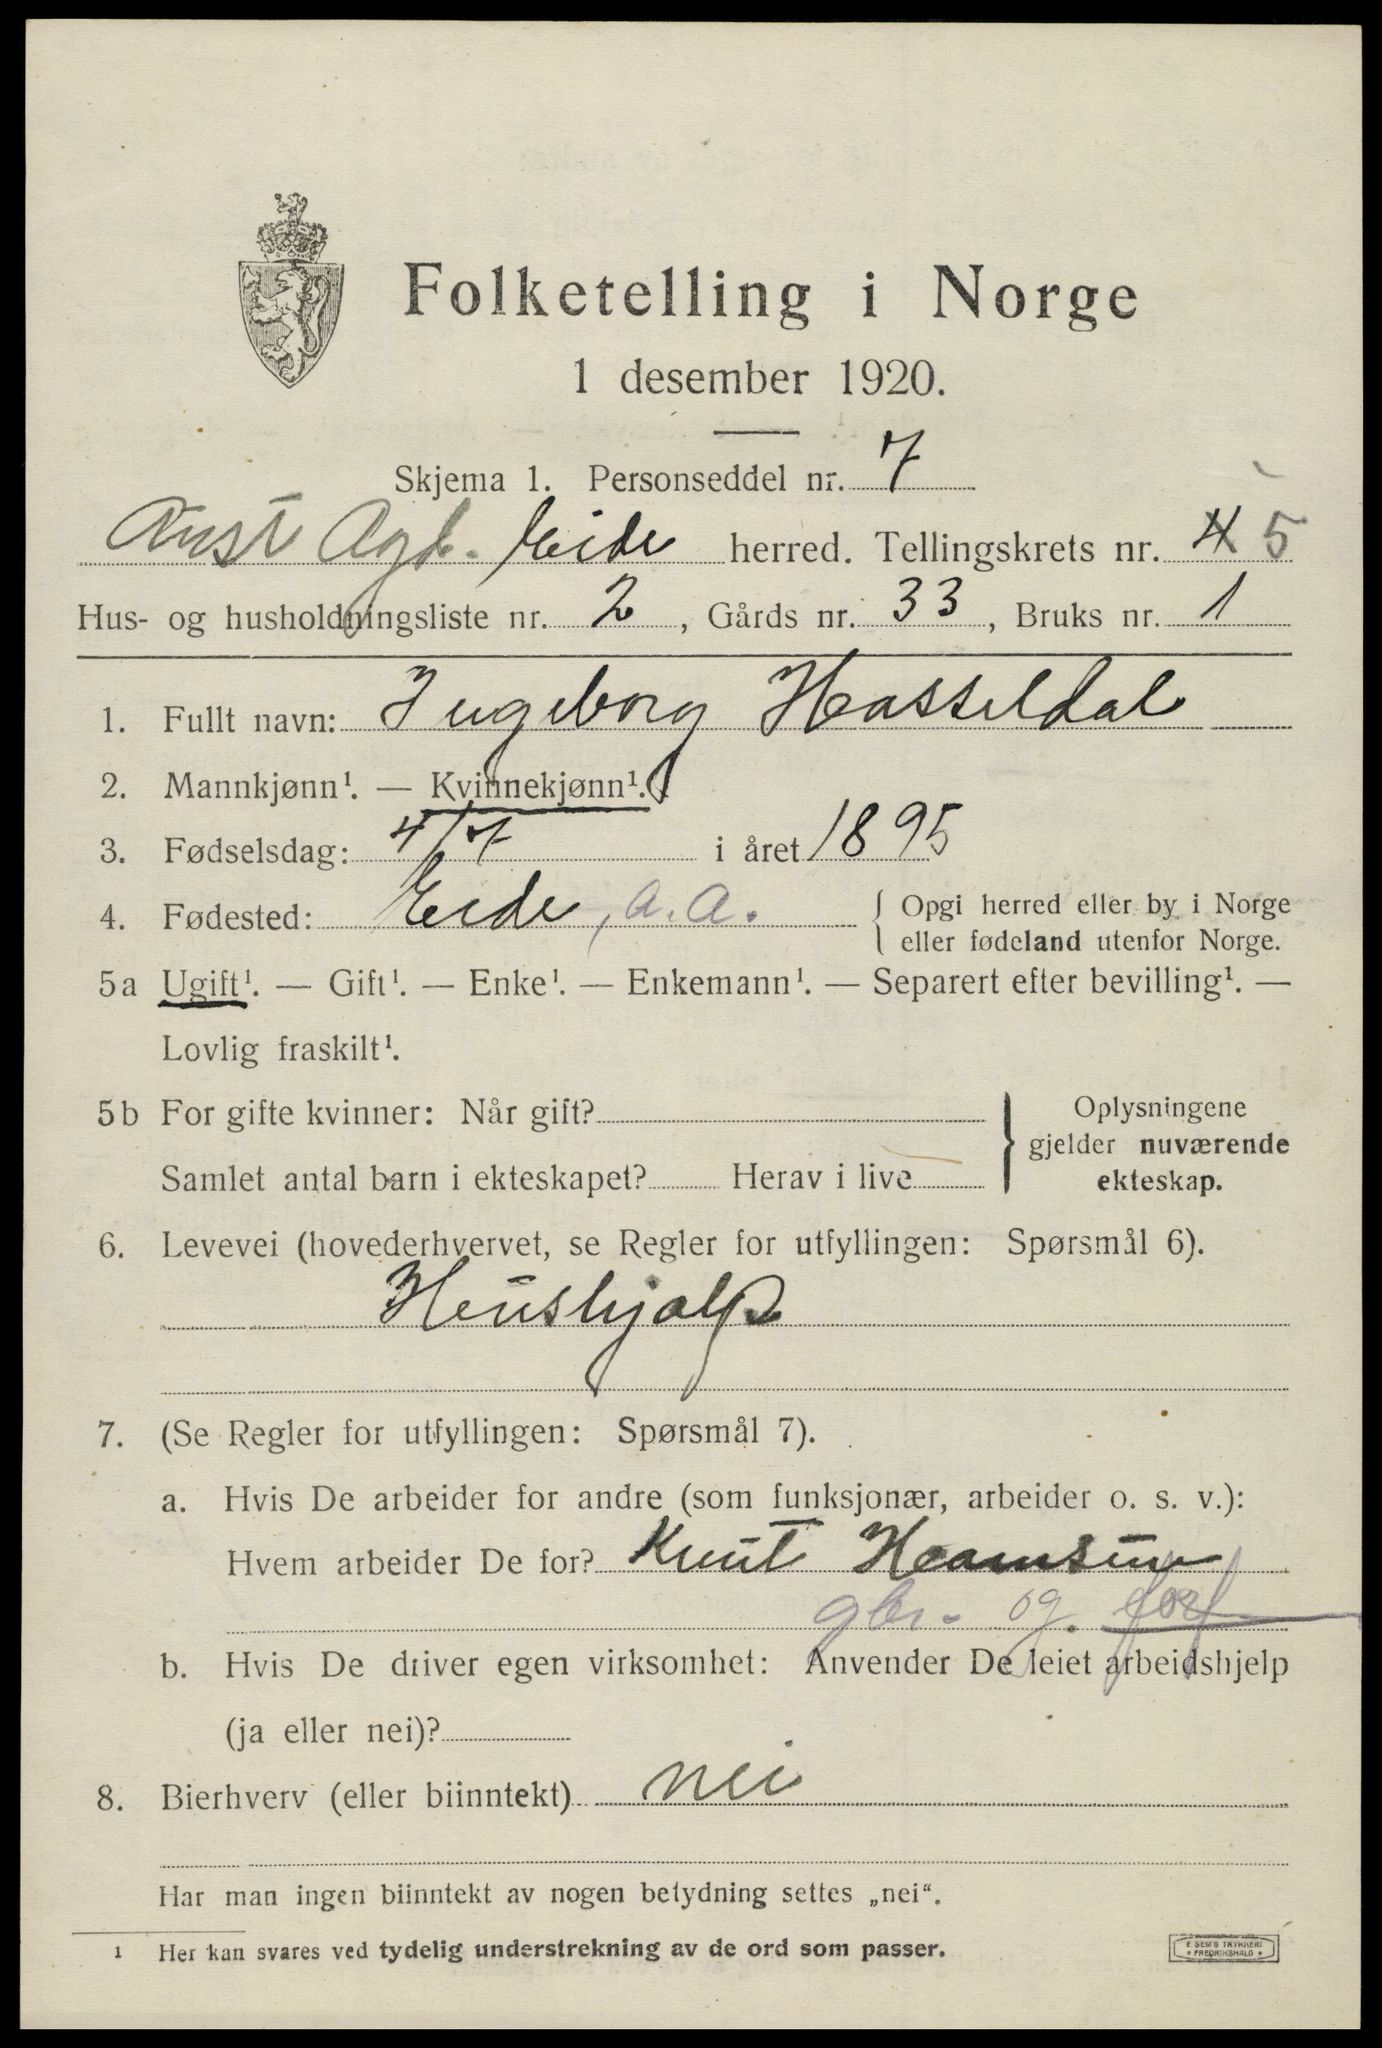 Folketelling i Norge
1 desember 1920.
Skjema 1. Personseddel nr. 7
Aust Agd. Eide herred. Tellingskrets nr. 4 5
Hus- og husholdningsliste nr. 2, Gårds nr. 33, Bruks nr. 1
1. Fullt navn: Ingeborg Hasseldal
2. Mannkjønn¹. — Kvinnekjønn¹.
3. Fødselsdag: 4/7 i året 1895
4. Fødested: Eide, A.A. { Opgi herred eller by i Norge
eller fødeland utenfor Norge.
5a Ugift¹. — Gift¹. — Enke¹. — Enkemann¹. — Separert efter bevilling¹. —
Lovlig fraskilt¹.
5b For gifte kvinner: Når gift?
Samlet antal barn i ekteskapet? Herav i live
} Oplysningene
gjelder nuværende
ekteskap.
6. Levevei (hovederhvervet, se Regler for utfyllingen: Spørsmål 6).
Haushjalp
7. (Se Regler for utfyllingen: Spørsmål 7).
a. Hvis De arbeider for andre (som funksjonær, arbeider o. s. v.):
Hvem arbeider De for? Knut Hamsun
gbr. og forf
b. Hvis De driver egen virksomhet: Anvender De leiet arbeidshjelp
(ja eller nei)?
8. Bierhverv (eller biinntekt) nei
Har man ingen biinntekt av nogen betydning settes „nei“.
¹ Her kan svares ved tydelig understrekning av de ord som passer.
E. SEM'S TRYKKERI
* FREDRIKSHALD *